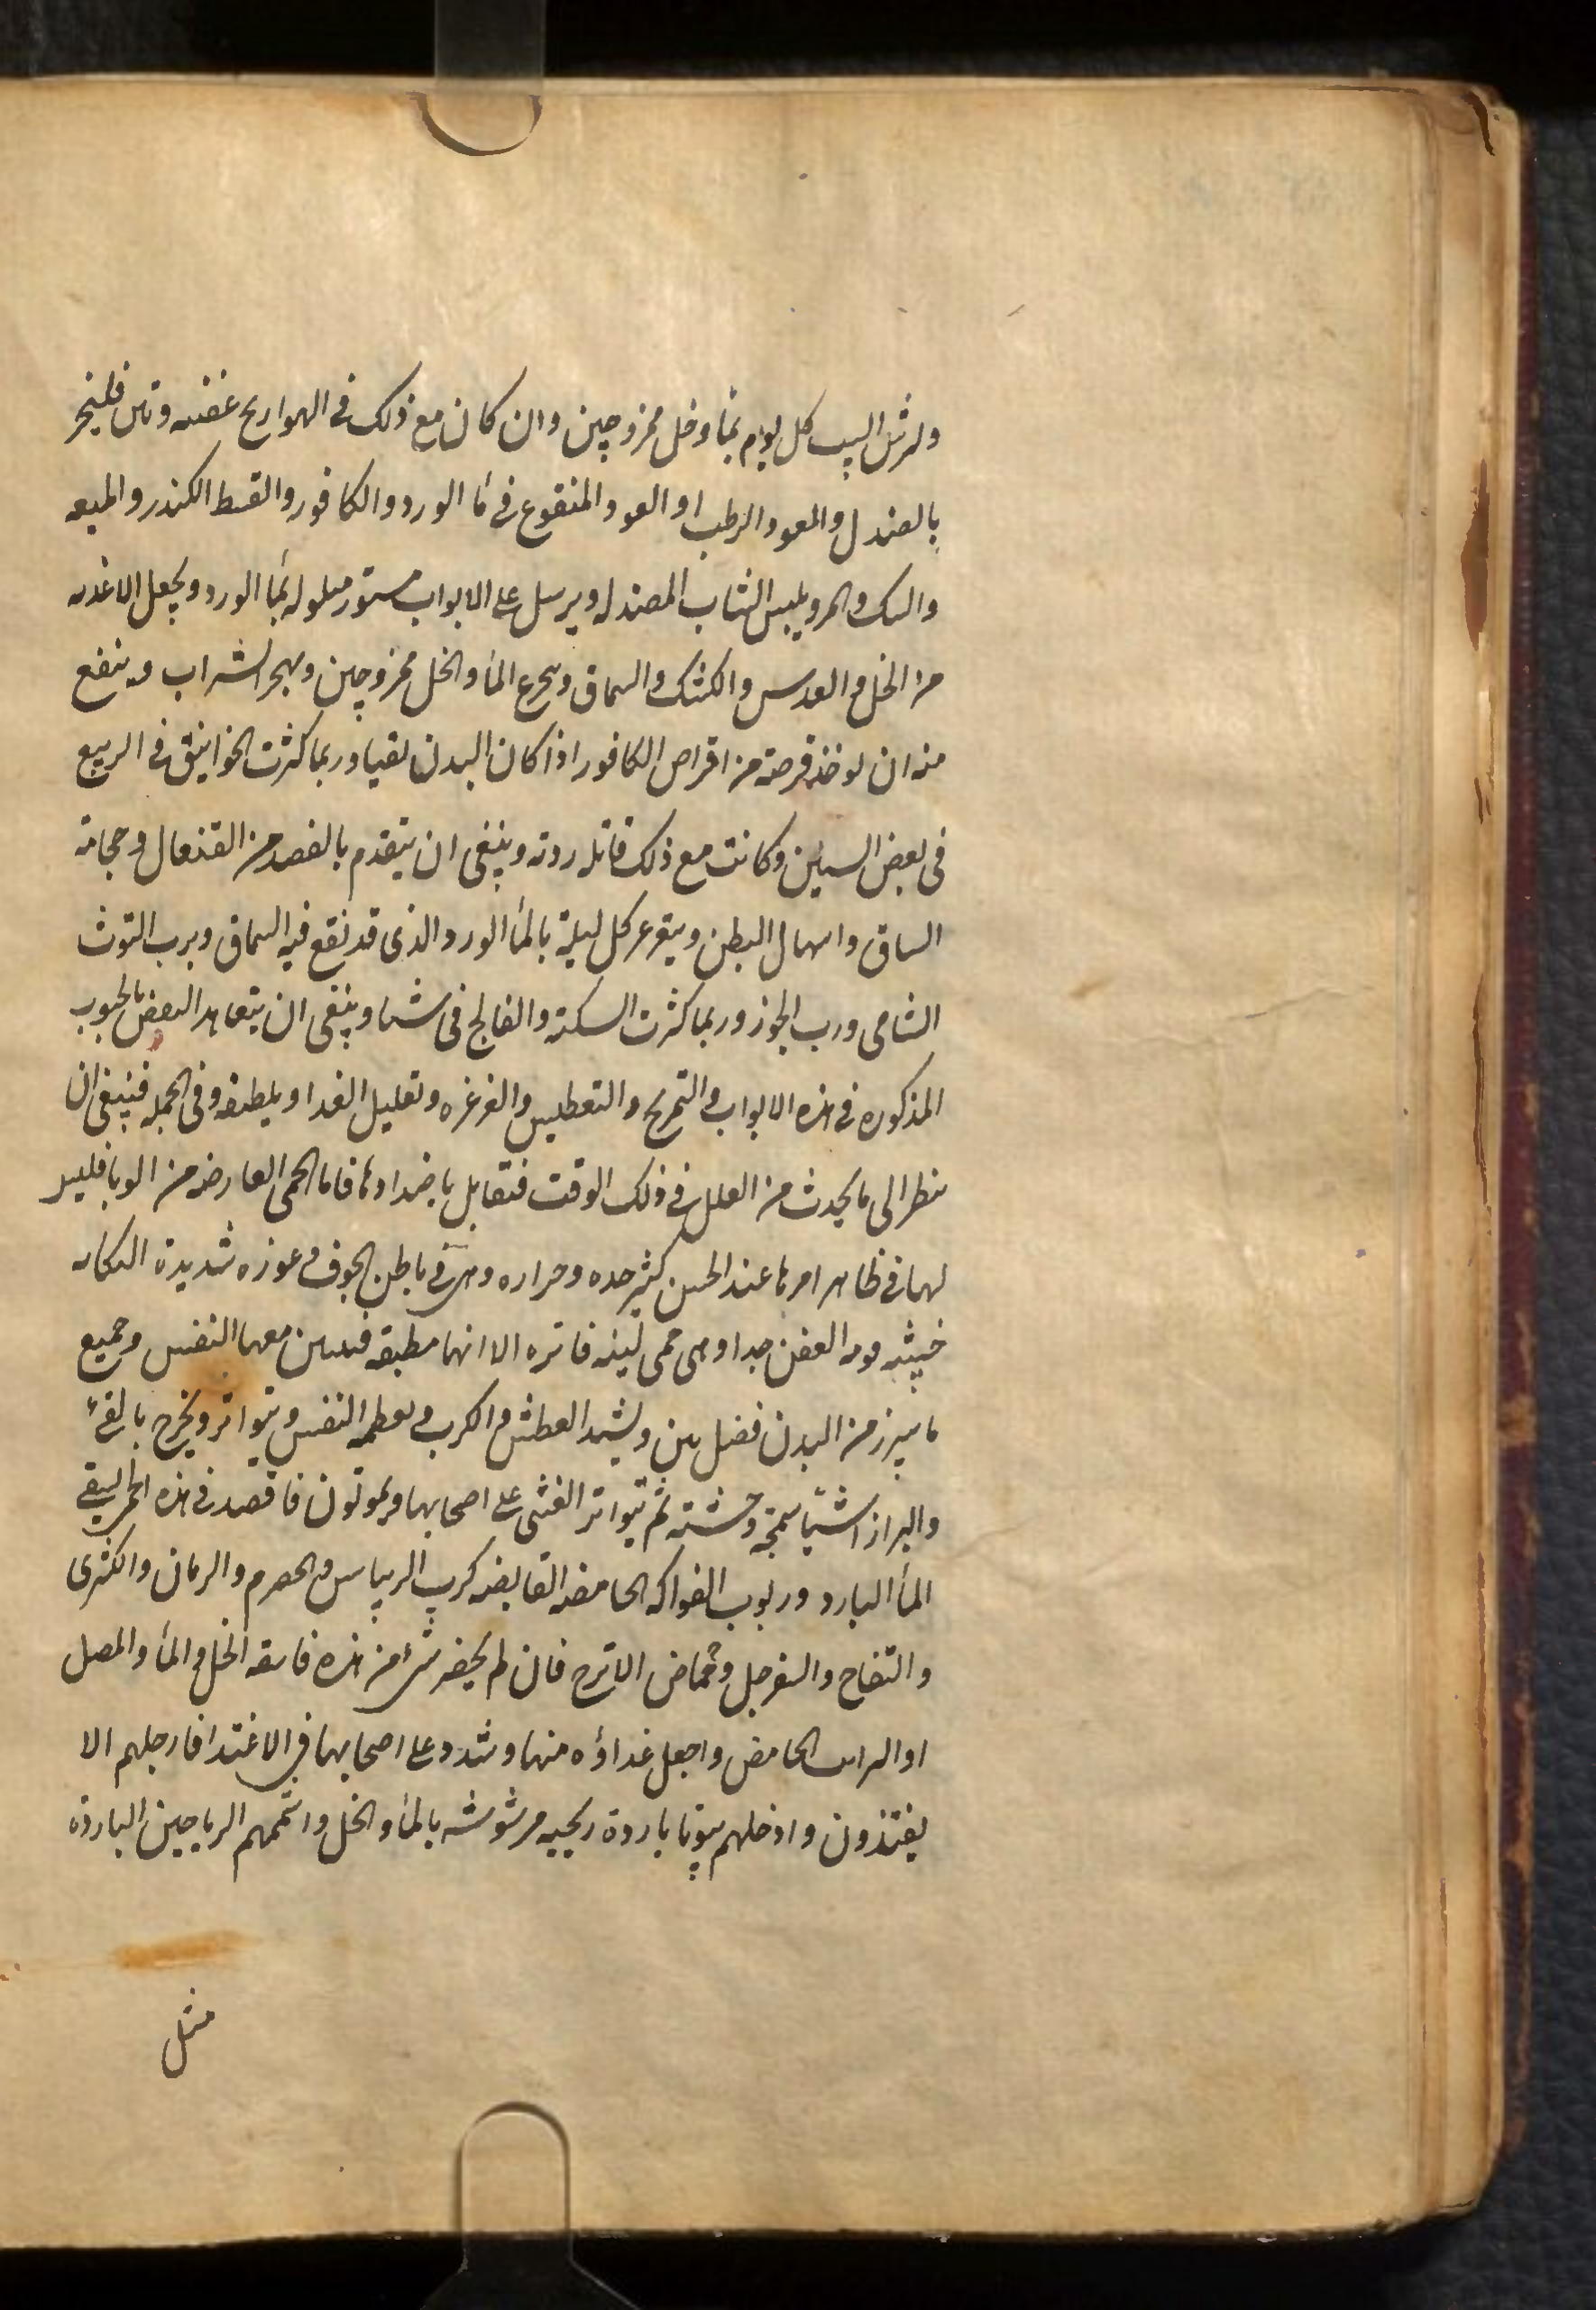 وليرش البيت كل يوم بمأ وخل ممزوجين وان كان مع ذلك فى الهوا ريح عفنه ونتن فليبخر
بالصندل والعود الرطب او العود المنقوع فى مأ الورد والكافور والقسط الكندر والميعه
والسك والمر ويلبس الثياب المصندله ويرسل على الابواب ستور مبلوله بمأ الورد ويجعل الاغذيه
من الخل والعدس والكشك والسماق ويتجرع المأ والخل ممزوجين ويهجر الشراب وينفع
منه ان يوخذ قرصة من اقراص الكافور اذا كان البدن نقيا وربما كثرت الخوانيق فى الربيع
فى بعض السنين وكانت مع ذلك قاتله رديه وينبغى ان يتقدم بالفصد من القيفال وحجامة
الساق واسهال البطن ويتغرغر كل ليلة بالمأ الورد الذى قد نقع فيه السماق وبرب التوث
الشامى ورب الجوز وربما كثرت السكتة والفالج فى شتا وينبغى ان يتعاهد النفض بالحبوب
المذكوره فى هذه الابواب والتمريخ والتعطيس والغرغره وتقليل الغدا ويلطفه وفى الجمله فينبغى ان
ينظر الى ما يحدث من العلل فى ذلك الوقت فتقابل باضدادها فاما الحمى العارضه من الوبا فليس
لها فى ظاهر امرها عند الحس كثير حده وحراره وهى فى باطن الجوف وعوره شديدة النكايه
خبيثه موديه العفن جدا وهى حمى لينه فاتره الا انها مطبقه فينتن معها النفس وجميع
ما يبرز من البدن فضل نتن ويشتد العطش والكرب ويعظم النفس ويتواتر ويخرج بالقئ
والبراز اشيأ سمجة وحشته ثم يتواتر الغشى على اصحابها ويموتون فاقصد فى هذه الحمى لسقى
المأ البارد وربوب الفواكه الحامضه القابضه كرب الريباس والحصرم والرمان والكثرى
والتفاح والسفرجل وحماض الاترج فان لم يحضر شئ من هذه فاسقه الخل والمأ والمصل
او الراىب الحامض واجعل غداؤه منها وشدد على اصحابها فى الاغتدا فارجلهم الا
يغتذون وادخلهم بيوتا باردة رحيبه مرشوشه بالمأ والخل واشممهم الرياحين الباردة
مثل